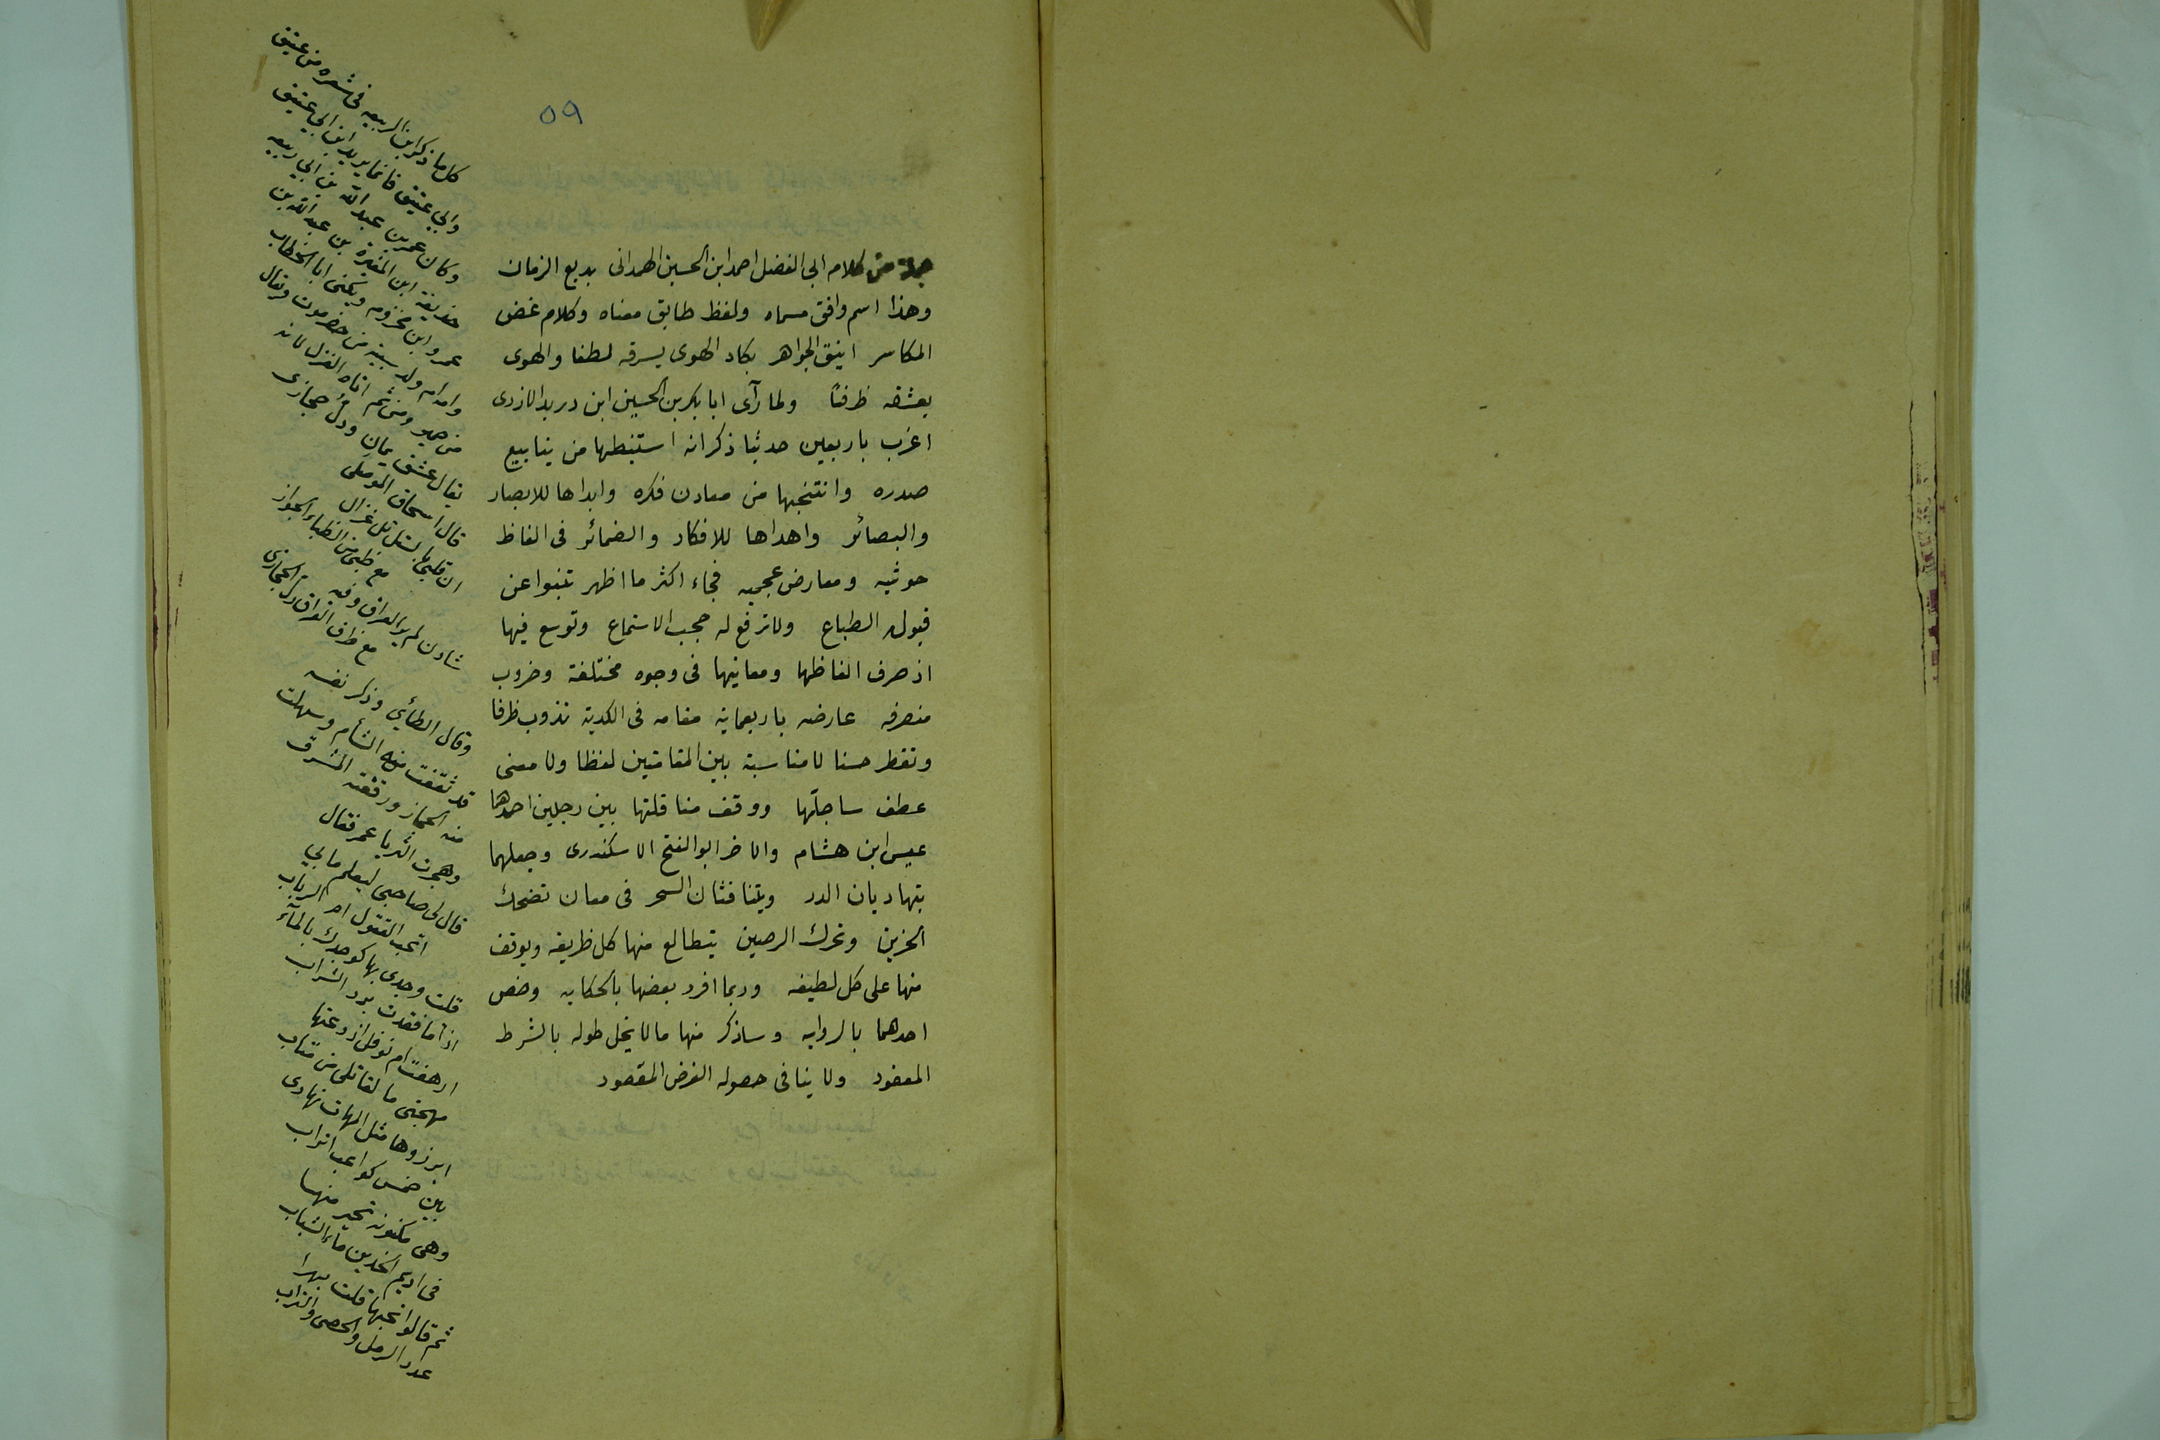 ٥٩
جملة من كلام ابى الفضل احمد ابن الحسين الهمدانى بديع الزمان
وهذا اسم وافق مسماه ولفظ طابق معناه وكلام غض
المكاسر انيق الجواهر يكاد الهوى يسرقه لطفا والهوى
يعشقه ظرفا ولما رآى ابا بكر بن الحسين ابن دريد الازدى
اغرب باربعين حديثا ذكر انه استنبطها من ينابيع
صدره وانتخبها من معادن فكره وابداها للابصار
والبصائر واهداها للافكار والضمائر فى الفاظ
حوشيه ومعارض عجميه فجاء اكثر ما اظهر تنبوا عن
قبوله الطباع ولا ترفع له حجب الاستماع وتوسع فيها
اذ صرف الفاظها ومعانيها فى وجوه مختلفة وضروب
منصرفه عارضه باربعماية مقامه فى الكدية تذوب ظرفا
وتقطر حسنا لا مناسبة بين المقامتين لفظا ولا معنى
عطف ساجلتها ووقف مناقلتها بين رجلين احدهما
عيسى ابن هشام والاخر ابو الفتح الاسكندرى وجعلهما
يتهاديان الدر ويتنافثان السحر فى معان تضحك
الحزين وتحرك الرصين يتطالع منها كل ظريفه ويوقف
منها على كل لطيفه وربما افرد بعضها بالحكايه وخص
احدهما بالروايه وساذكر منها ما لا يخل طوله بالشرط
المعقود ولا ينافى حصوله الغرض المقصود
كل ما ذكر ابن الربيعه فى شعره من عتيق
وابي عتيق فانما يريد ابن ابي عتيق
وكان عمر بن عبد الله بن ابي ربيعه
حذيفة ابن المغيرة بن عبد الله بن
عمر وابن مخزوم ويكنى ابا الخطاب
وامه ام ولد سبية من حضرموت ويقال
من حمير ومن ثم اتاه الغزل لانه
يقال عشق يمان ودل حجازى
قال اسحاق الموصلى
ان قلبى بالتل تل غزال
مع ظبى من الظباء الجوازى
شادن لم ير العراق وفيه
مع ظرف العراق دل الحجازى
وقال الطائي وذكر نفسه
قد ثقفت منه الشأم وسهلت
منه الحجاز ورققته المشرق
وهجرت الثريا عمر فقال
قال لى صاحبى ليعلم ما بي
اتحب القتول ام الرباب
قلت وجدى بها كوجدك بالمآء
اذا ما فقدت برد الشراب
ازهقت ام نوفل اذ دعتها
مهجتى ما لقاتلى من متاب
ابرزوها مثل المهات تهادى
بين خمس كواعب اتراب
وهى مكنونه تحير منها
فى اديم الخدين ماء الشباب
ثم قالوا تحبها قلت بهرا
عدد الرمل والحصى والتراب